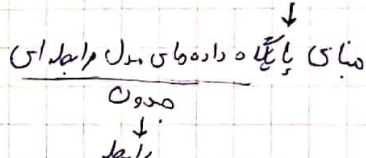 مبنای پایگاه داده‌های مدل رابطه‌ای
جدول
رابطه